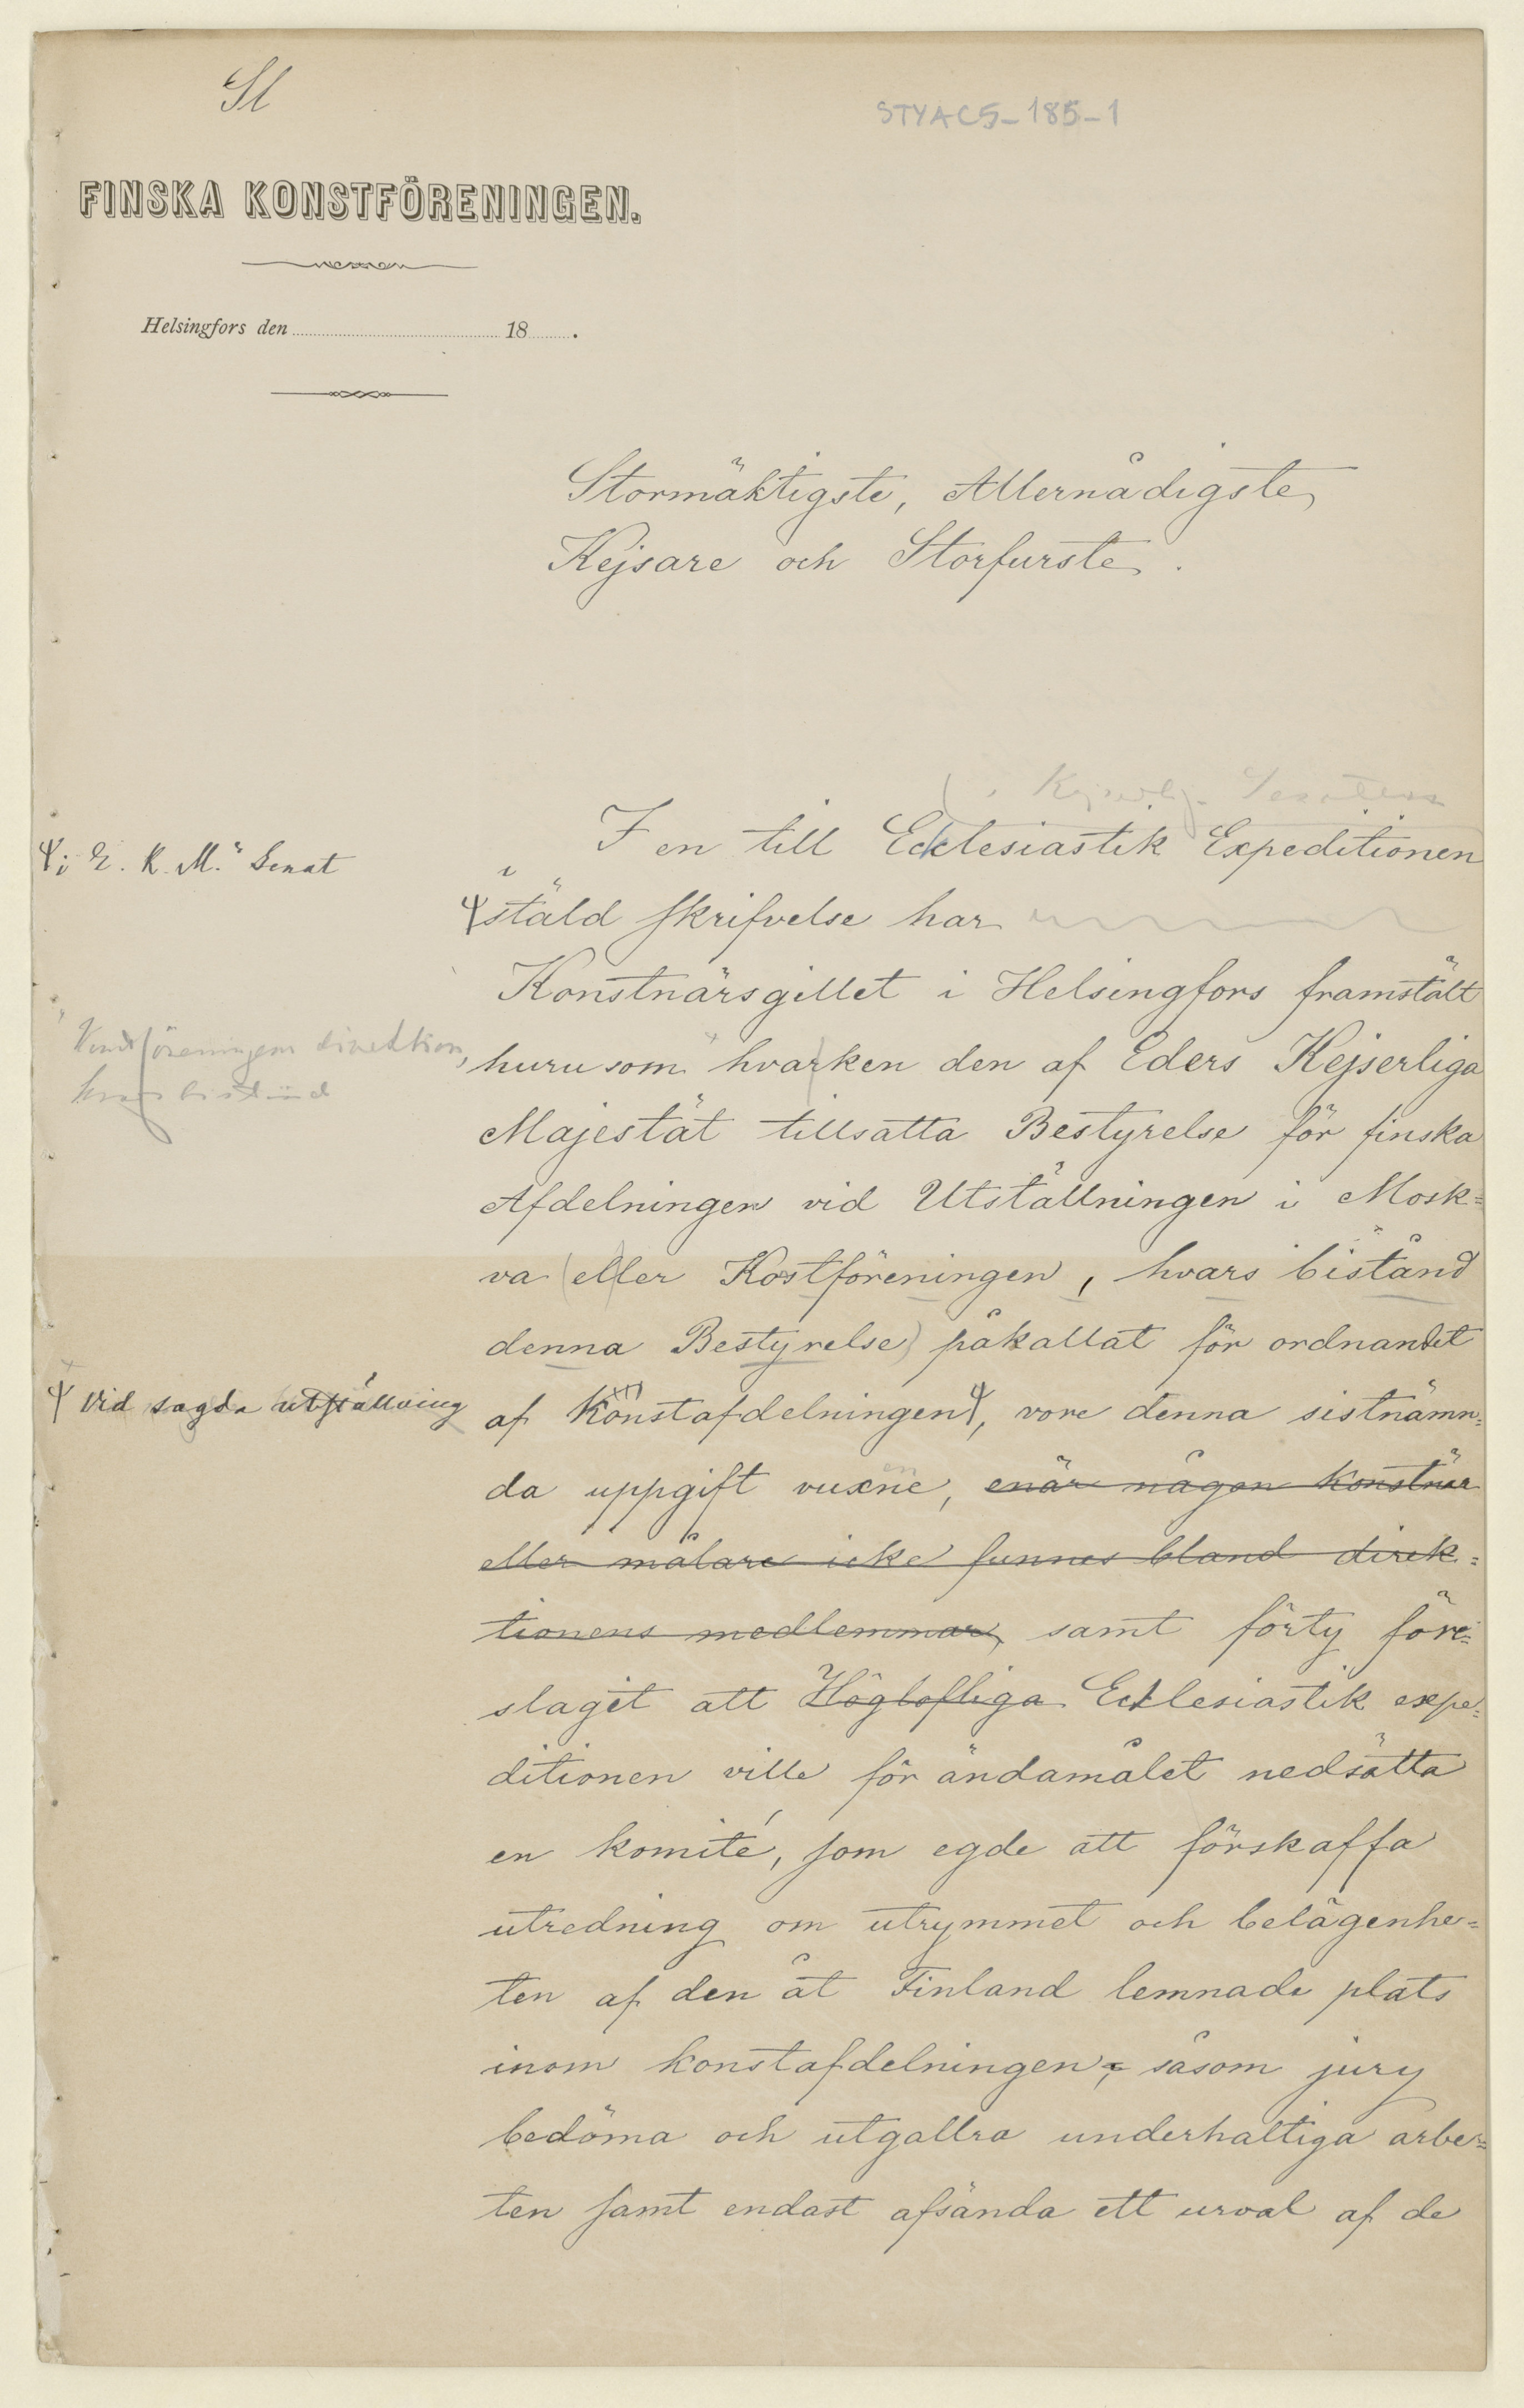 STYAC5-185-1
FINSKA KONSTFÖRENINGEN.
Helsingfors den 18 .
Stormäktigste, Allernådigste
Kejsare och Storfurste.
Kejserlig Senatens
I en till Ecklesiastik Expeditionen
i E. K. M:s Senat
stäld skrifvelse har
Konstnärsgillet i Helsingfors framstält
Konstföreningens direktion,
hvars bistånd
hurusom hvarken den af Eders Kejserliga
Majestät tillsatta Bestyrelse för finska
Afdelningen vid Utställningen i Mosk=
va (eller Kostföreningen, hvars bistånd
denna Bestyrelse) påkallat för ordnandet
vid sagda utställning
af Konstafdelningen, vore denna sistnämn=
da uppgift vuxne, enär någon konstnär
eller målare icke funnes bland direk=
tionens medlemmar, samt förty före=
slagit att Höglofliga Ecklesiastik expe=
ditionen ville för ändamålet nedsätta
en komité, som egde att förskaffa
utredning om utrymmet och belägenhe=
ten af den åt Finland lemnade plats
inom konstafdelningen, såsom jury
bedöma och utgallra underhaltiga arbe=
ten samt endast afsända ett urval af de